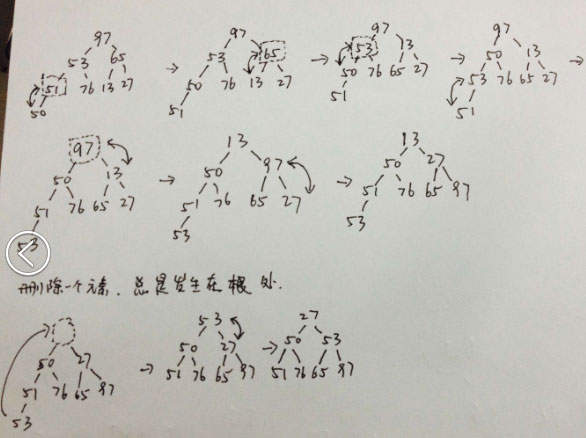 97 97 97 97
53 65 53 65 53 13 50 13
51 76 13 27 50 76 13 27 50 76 65 27 53 76 65 27
50 51 51 51
97 13 13
50 13 50 97 50 27
51 76 65 27 51 76 65 27 51 76 65 97
53 53 53
删除一个元素，总是发生在根处.
53 27
50 27 50 27 50 53
51 76 65 97 51 76 65 97 51 76 65 97
53